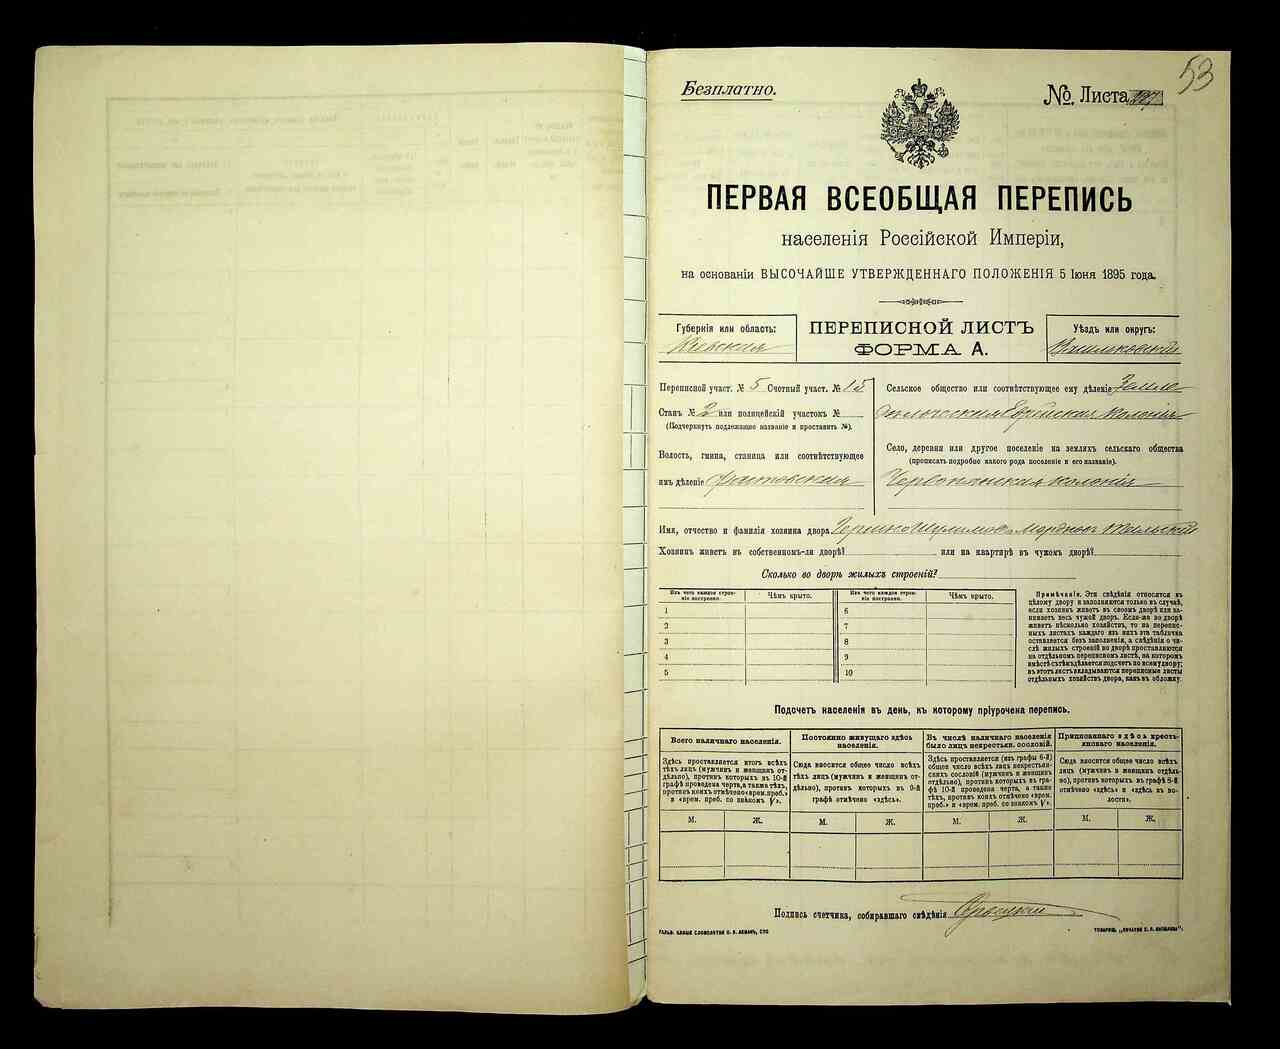 53
Безплатно.
№. Листа
ПЕРВАЯ ВСЕОБЩАЯ ПЕРЕПИСЬ
населенія Россійской Имперіи,
на основаніи ВЫСОЧАЙШЕ УТВЕРЖДЕННАГО ПОЛОЖЕНІЯ 5 Іюня 1895 года.
Губернія или область:
Кіевская
ПЕРЕПИСНОЙ ЛИСТЪ
ФОРМА А.
Уѣздъ или округъ:
Васильковскій
Переписной участ. № 5 Счетный участ. № 15
Станъ № 2 или полицейскій участокъ №
(Подчеркнуть подлежащее названіе и проставить №).
Волость, гмина, станица или соотвѣтствующее
имъ дѣленіе Фастовская
Сельское общество или соотвѣтствующее ему дѣленіе Земле
дѣльческая Еврейская колонія
Село, деревня или другое поселеніе на земляхъ сельскаго общества
(прописать подробно какого рода поселеніе и его названіе).
Червонянская колонія
Имя, отчество и фамилія хозяина двора
Хозяинъ живетъ въ собственномъ-ли дворѣ? или на квартирѣ въ чужомъ дворѣ?
Сколько во дворѣ жилыхъ строеній?
Изъ чего каждое строе-
ніе построено.
Чѣмъ крыто.
Изъ чего каждое строе-
ніе построено.
Чѣмъ крыто.
1 6
2 7
3 8
4 9
5 10
Примѣчаніе. Эти свѣдѣнія относятся къ
цѣлому двору и заполняются только въ случаѣ,
если хозяинъ живетъ въ своемъ дворѣ или за-
нимаетъ весь чужой дворъ. Если-же во дворѣ
живетъ нѣсколько хозяйствъ, то на перепис-
ныхъ листахъ каждаго изъ нихъ эта табличка
оставляется безъ заполненія, а свѣдѣнія о чи-
слѣ жилыхъ строеній во дворѣ проставляются
на отдѣльномъ переписномъ листѣ, на которомъ
вмѣстѣ съ тѣмъ дѣлается подсчетъ по всему двору;
въ этотъ листъ вкладываются переписные листы
отдѣльныхъ хозяйствъ двора, какъ въ обложку.
Подсчетъ населенія въ день, къ которому пріурочена перепись.
Всего наличнаго населенія.
Здѣсь проставляется итогъ всѣхъ
тѣхъ лицъ (мужчинъ и женщинъ от-
дѣльно), противъ которыхъ въ 10-й
графѣ проведена черта, а также тѣхъ,
противъ коихъ отмѣчено «врем. преб.»
и «врем. преб. со знакомъ V».
Постоянно живущаго здѣсь
населенія.
Сюда вносится общее число всѣхъ
тѣхъ лицъ (мужчинъ и женщинъ от-
дѣльно), противъ которыхъ въ 9-й
графѣ отмѣчено «здѣсь».
Въ числѣ наличнаго населенія
было лицъ некрестьян. сословій.
Здѣсь проставляется (изъ графы 6-й)
общее число всѣхъ лицъ некрестьян-
скихъ сословій (мужчинъ и женщинъ
отдѣльно), противъ которыхъ въ гра-
фѣ 10-й проведена черта, а также
тѣхъ, противъ коихъ отмѣчено «врем.
преб.» и «врем. преб. со знакомъ V».
Приписаннаго здѣсь кресть-
янскаго населенія.
Сюда вносится общее число всѣхъ
лицъ (мужчинъ и женщинъ отдѣль-
но), противъ которыхъ въ графѣ 8-й
отмѣчено «здѣсь» и «здѣсь въ во-
лости».
М. Ж. М. Ж. М. Ж. М. Ж.
Подпись счетчика, собиравшаго свѣдѣнія